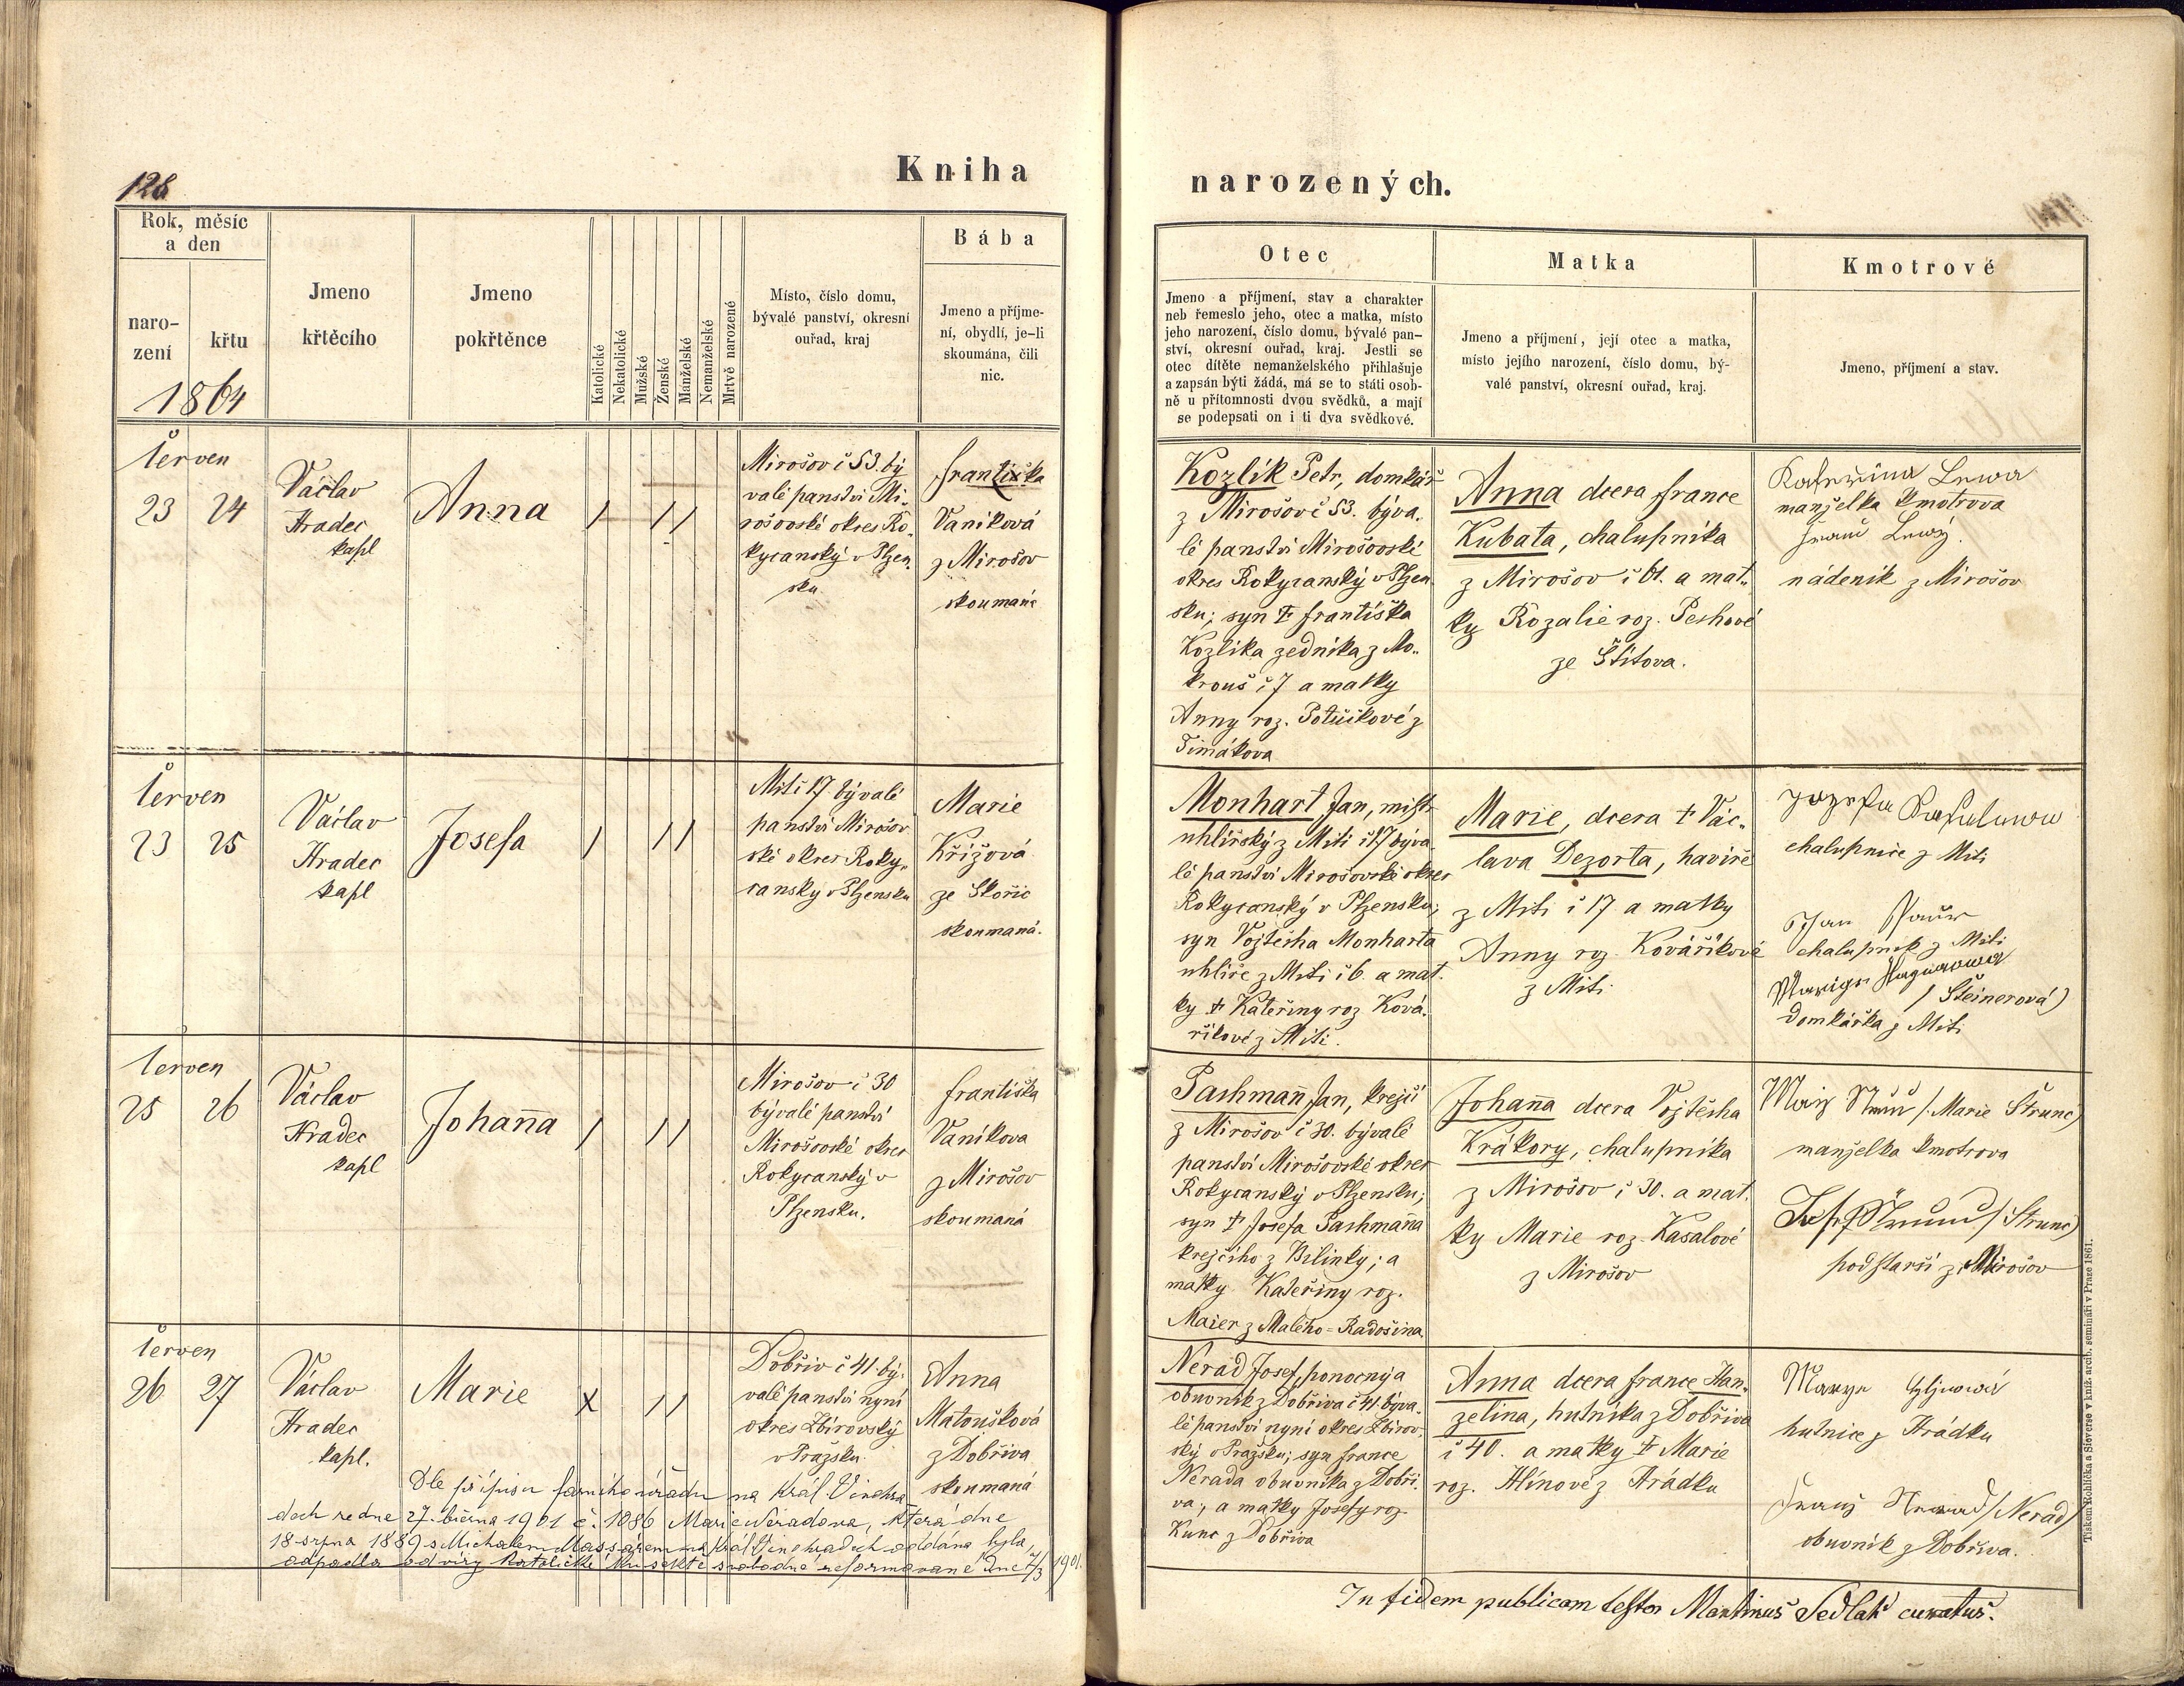 128
Kniha
narozených.
Rok, měsíc
a den
naro-
zení
křtu
1864
Jmeno
křtěcího
Jmeno
pokřtěnce
Katolické
Nekatolické
Mužské
Ženské
Manželské
Nemanželské
Mrtvě narozené
Místo, číslo domu,
bývalé panství, okresní
ouřad, kraj
Bába
Jmeno a příjme-
ní, obydlí, je-li
skoumána, čili
nic.
Otec
Jmeno a příjmení, stav a charakter
neb řemeslo jeho, otec a matka, místo
jeho narození, číslo domu, bývalé pan-
ství, okresní ouřad, kraj. Jestli se
otec dítěte nemanželského přihlašuje
a zapsán býti žádá, má se to státi osob-
ně u přítomnosti dvou svědků, a mají
se podepsati on i ti dva svědkové.
Matka
Jmeno a příjmení, její otec a matka,
místo jejího narození, číslo domu, bý-
valé panství, okresní ouřad, kraj.
Kmotrové
Jmeno, příjmení a stav.
Červen
23 24
Václav
Hradec
kapl
Anna
/ / /
Mirošov č 53. bý
valé panství Mi-
rošovské okres Ro-
kycanský v Plzen-
sku
Františka
Vaníková
z Mirošov
skoumaná
Kozlík Petr, domkář
z Mirošov č 53. býva-
lé panství Mirošovské
okres Rokycanský v Plzen
sku; syn † Františka
Kozlíka zedníka z Mo-
krouš č 7 a matky
Anny roz. Potůčkové z
Timákova
Anna dcera France
Kubata, chalupníka
z Mirošov č 61. a mat-
ky Rozalie roz. Peshové
ze Štítova.
Kateřina Lewa
manželka kmotrova
Franc Lewý.
nádeník z Mirošov
Červen
23 25
Václav
Hradec
kapl
Josefa
/ / /
Miti č 17. bývalé
panství Mirošov-
ské okres Roky-
canský v Plzensku
Marie
Křížová
ze Skořic
skoumaná.
Monhart Jan, mistr
uhlířský z Miti č 17 býva-
lé panství Mirošovské okres
Rokycanský v Plzensku;
syn Vojtěcha Monharta
uhlíře z Miti č 6. a mat-
ky † Kateřiny roz Ková-
říkové z Miti.
Marie, dcera † Vác-
lava Dezorta, havíře
z Miti č 17. a matky
Anny roz. Kováříkové
z Miti.
chalupnice z Miti
Jan
chalupník z Miti
(Steinerová)
domkářka z Miti
Červen
25 26
Václav
Hradec
kapl
Johanna
/ / /
Mirošov č 30
bývalé panství
Mirošovské okres
Rokycanský v
Plzensku.
Františka
Vaníkova
z Mirošov
skoumaná
Pashmann Jan, krejčí
z Mirošov č 30. bývalé
panství Mirošovské okres
Rokycanský v Plzensku;
syn † Josefa Pashmanna
krejčího z Bílinky; a
matky Kateřiny roz.
Maier z Malého-Radošina
Johanna dcera Vojtěcha
Krákory, chalupníka
z Mirošov č 30. a mat-
ky Marie roz. Kasalové
z Mirošov
(Marie Štrunc)
manželka kmotrova
(Štrunc)
podstarší z Mirošov
Červen
26 27
Václav
Hradec
kapl.
Marie
x / /
Dobřív č 41. bý-
valé panství nyní
okres Zbirovský
v Pražsku.
Anna
Matoušková
z Dobříva
skoumaná
Nerad Josef, ponocný a
obuvník z Dobříva č 41. býva-
lé panství nyní okres Zbirov-
ský v Pražsku; syn France
Nerada obuvníka z Dobři-
va; a matky Josefy roz
Kunc z Dobříva
Anna dcera France Han-
zelina, hutníka z Dobříva
č 40. a matky † Marie
roz. Hlínové z Hrádku
hutnice z Hrádku
Franz (Nerad)
obuvník z Dobříva.
Dle přípisu farního úřadu na Král. Vinohra-
dech ze dne 27. března 1901 č. 1086 Marie Neradova, která dne
18 srpna 1889 s Michalem Massářem na Král. Vinohradech oddána byla,
odpadla od víry katolické ku sektě svobodné reformované dne 7/3 1901.
In fidem publicam testor Martinus Sedlak curatus.
Tiskem Rohlíčka a Sieverse v kníž. arcib. semináři v Praze 1861.